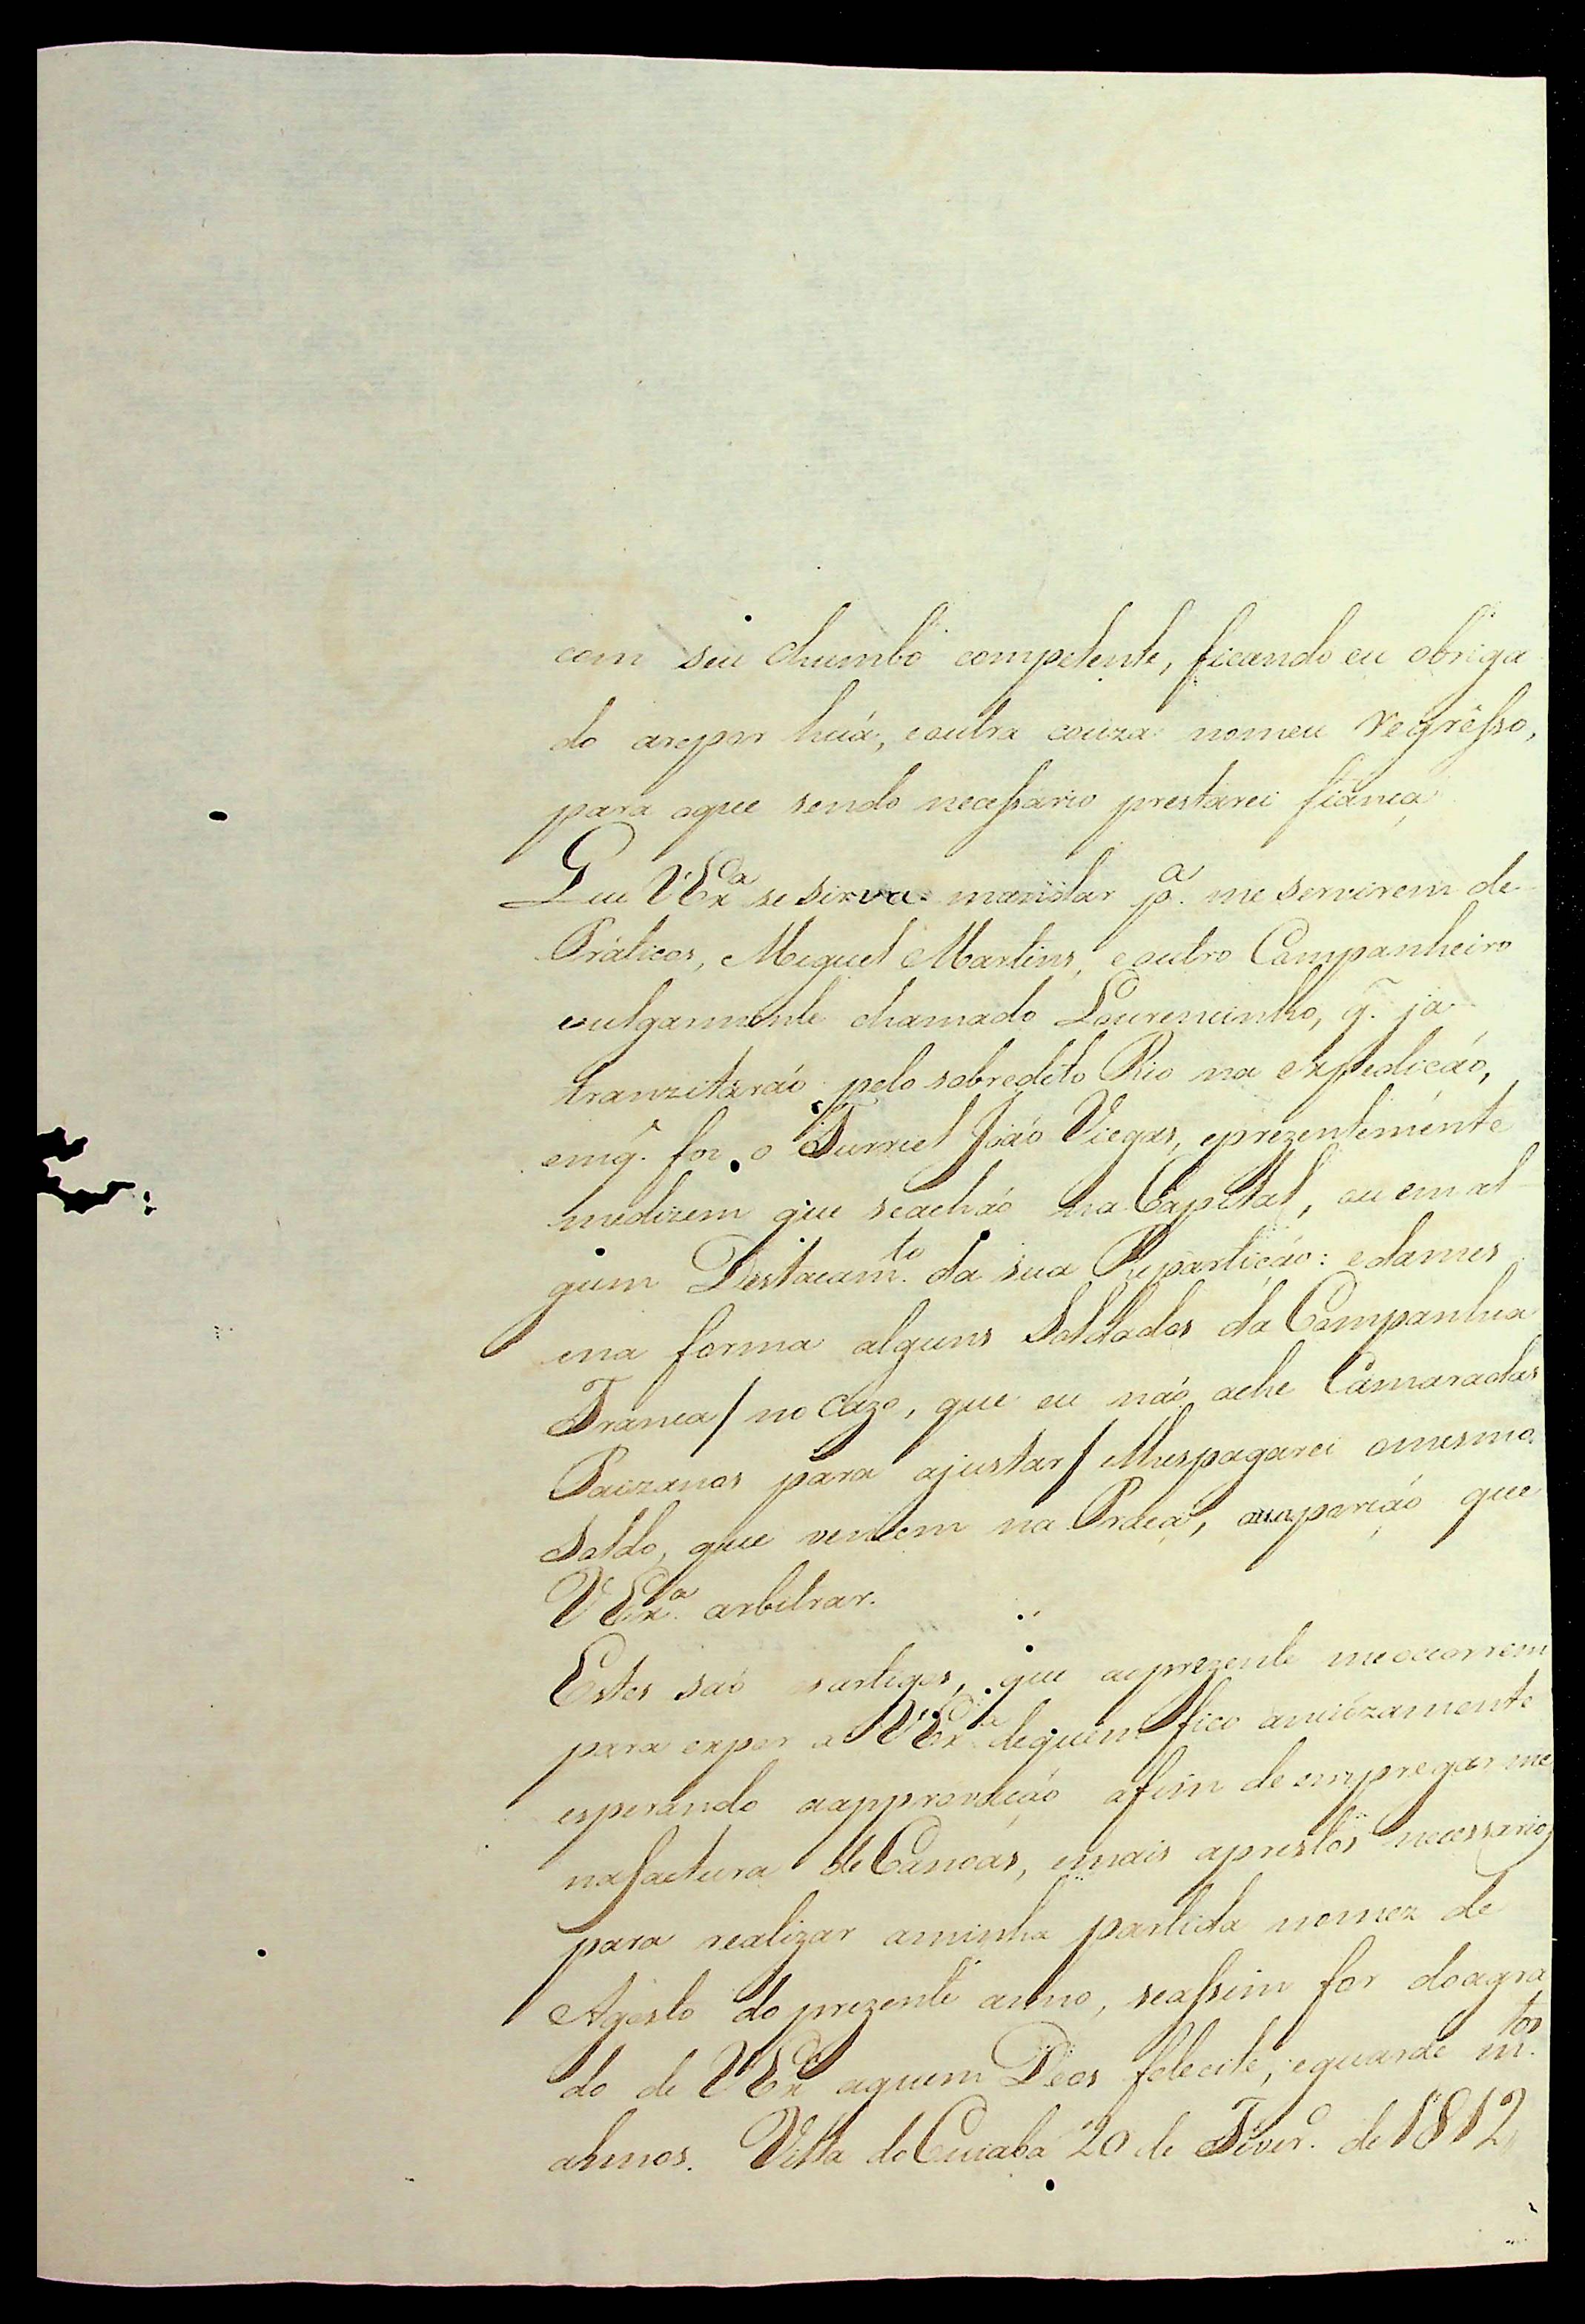 com seu chumbo competente, ficando eu obriga
do arepor huá, eoutra couza nomeu regrésso,
para oque sendo necessario prestarei fiança
Que VEx.ª se sirva mandar p.ª me servirem de
Práticos, Miguel Martins, eoutro Companheiro
vulgarmente chamado Lourencinho, q̃ ja
tranzitaráo pelo sobredito Rio na expedicáo,
emq̃ foi o Furriel Joáo Viegas, eprezenteménte
medizem que seacháo na Capital, ou em al
gum Destacam.to da sua Reparticáo: edames
ma forma alguns Soldados da Companhia
Franca / no cazo, que eu náo ache Camaradas
Paizanos para ajustar / Alhespagarei omesmo
Soldo, que vencem na Praça, ouaporçáo que
VEx.ª arbitrar.
Estes saó osartigos, que aoprezente meocorrem
para expor a VEx.ª dequem fico anciózamente
esperando aapprovaçáo afim de empregar me
nafactura de Canoas, emais aprestos necessarios
para realizar aminha partida nomez de
Agosto do prezente anno, seassim for doagra
do de VEx.ª aquem Deos felecite, eguarde m.tos
annos. Villa do Cuiabá 20 de Fever.º de 1812,